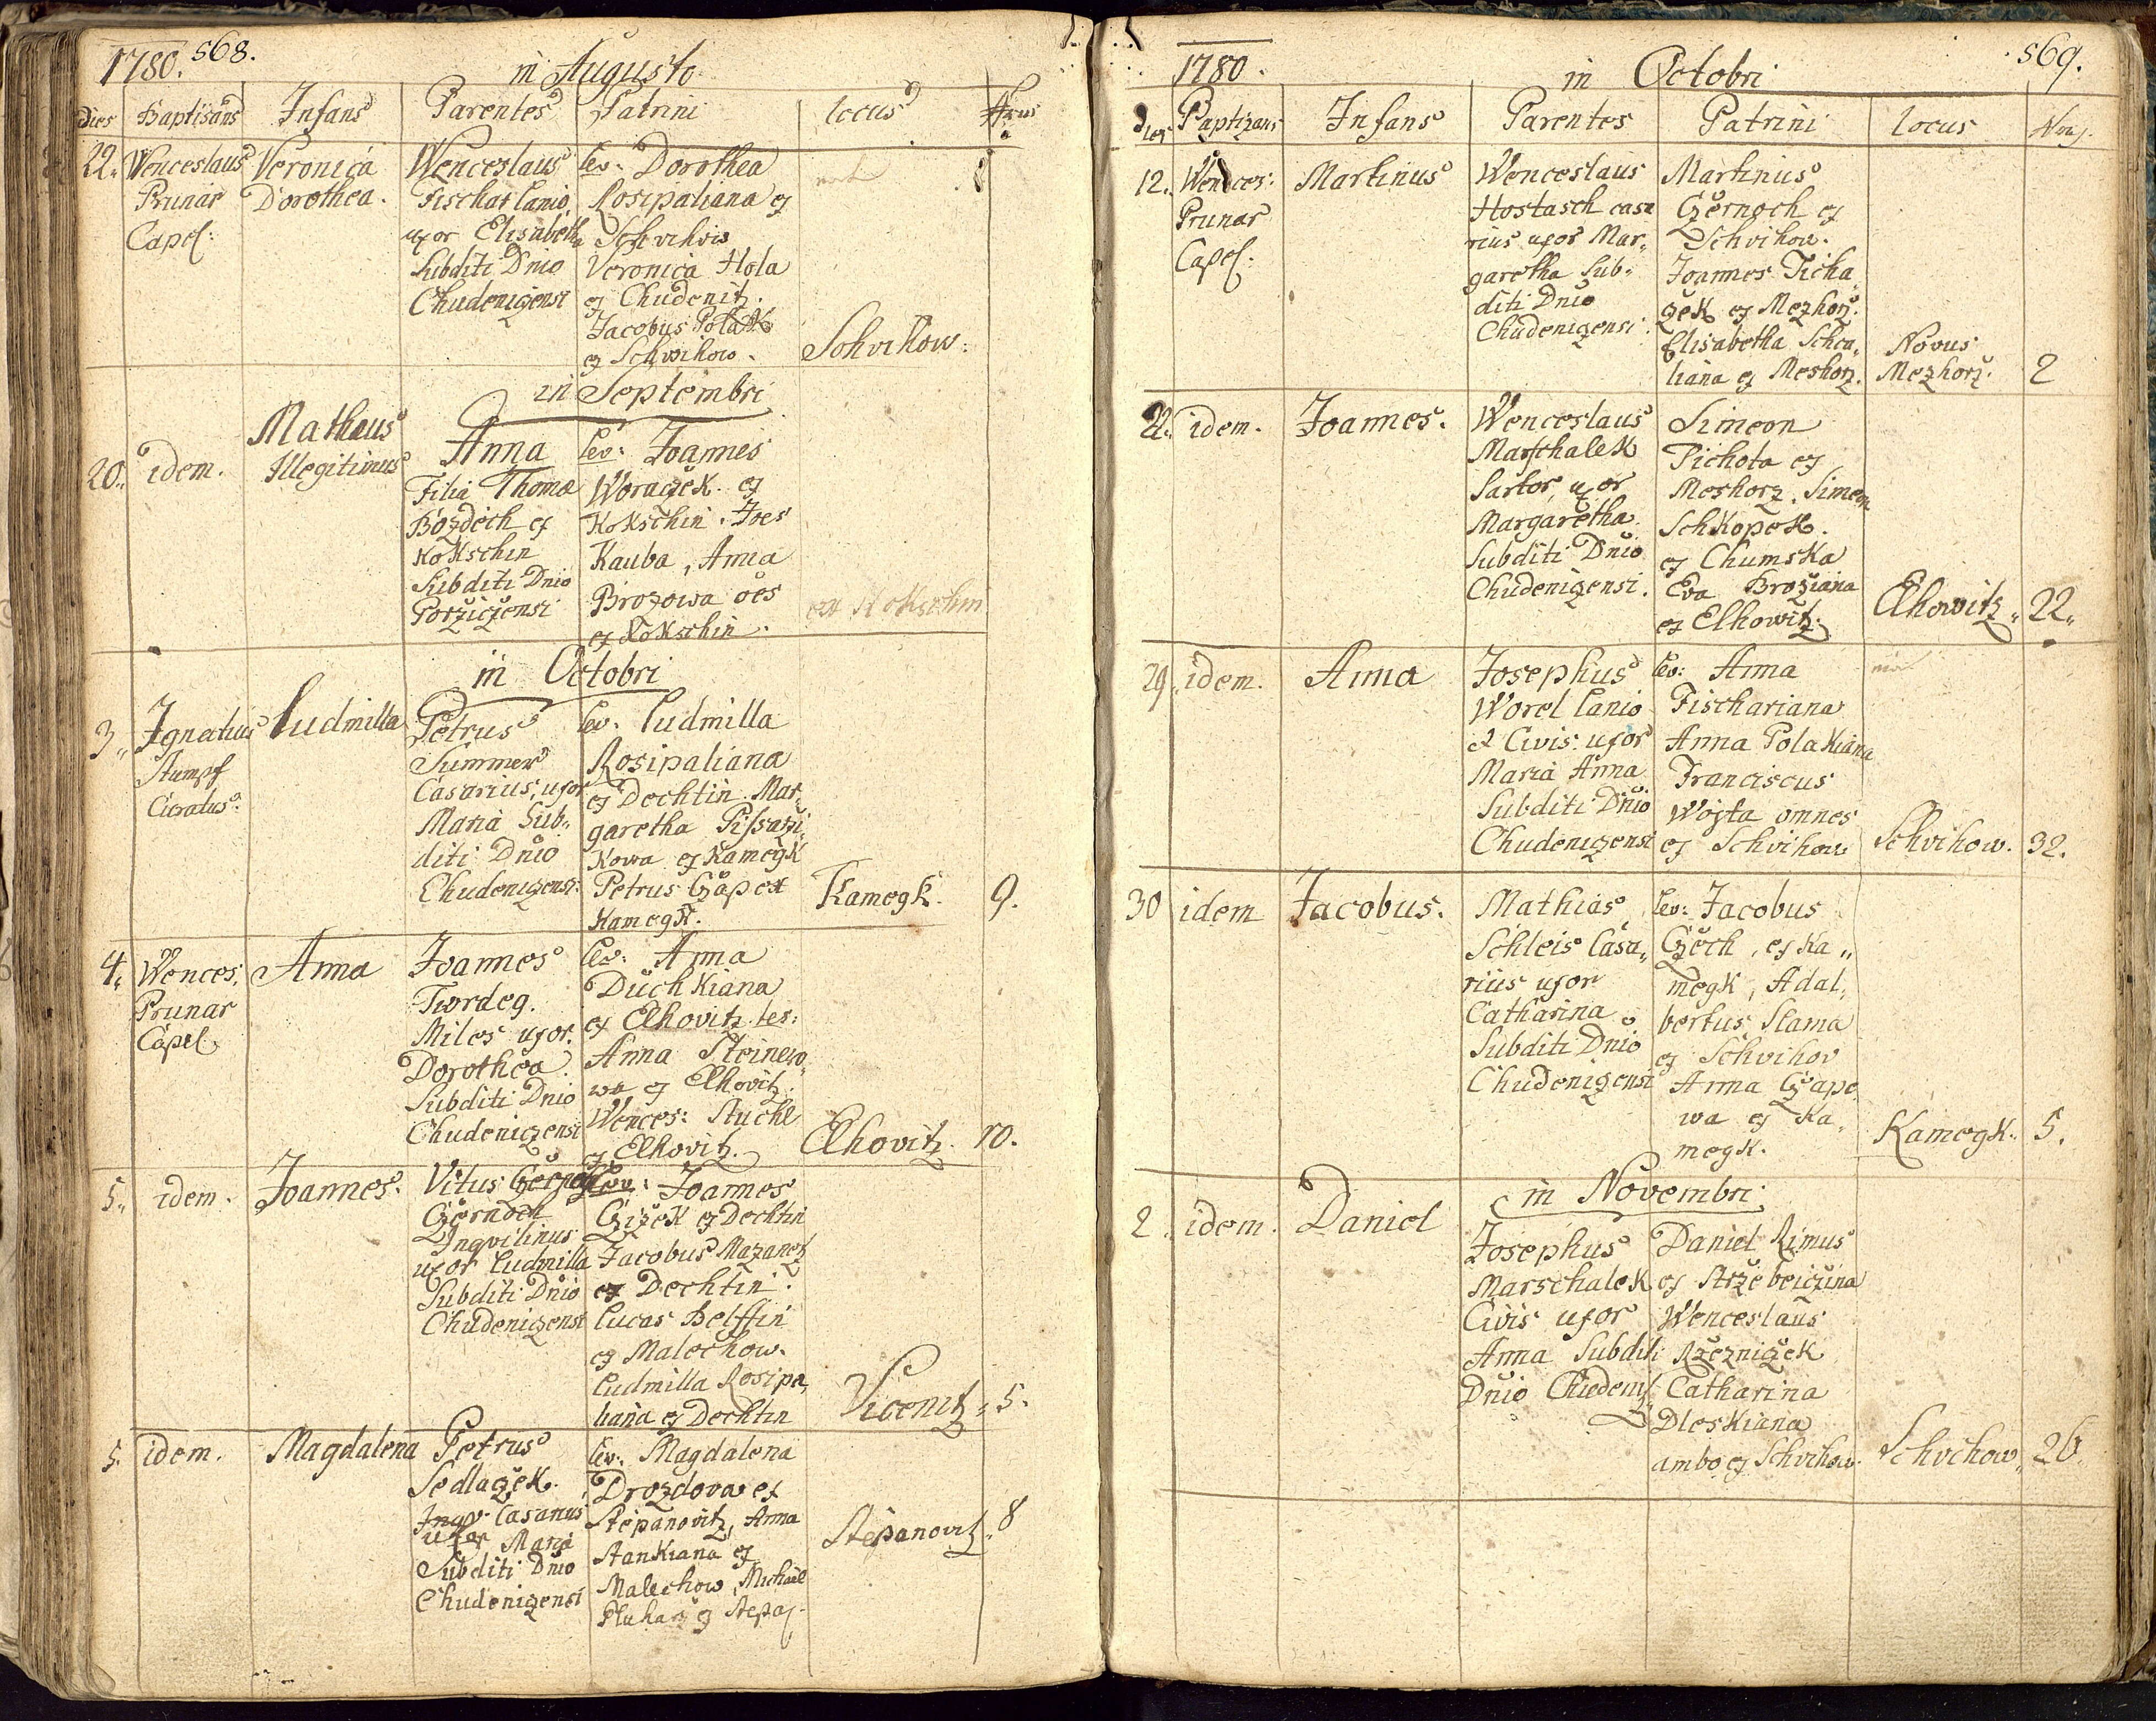 1780. 568.
in Augusto
dies Baptisans Infans Parentes Patrini locus Nrus
22. Wenceslaus Prunar Capel:
Veronica Dorothea.
Wenceslaus
Fischar Lanio
uxor Elisabetha
Subditi Dnio
Chudenizensi
Lev: Dorothea
Rosipaliana ex
Schvihow
Veronica Hola
ex Chudenitz.
Jacobus Polak
ex Schvihow.
Schvihow.
in Septembri
20. idem.
Mathaus
Illegitimus
Anna
Filia Thomæ
Bozdech ex
Kokschin
Subditi Dnio
Porziczensi
Lev: Joannes
Woraczek ex
Kokschin. Joes
Kauba, Anna
Brozowa oes
ex Kokschin.
ex Kokschin
in Octobri
3. Ignatius
Stumpf
Curatus.
Ludmilla
Petrus
Summer
Casarius, uxor
Maria Sub-
diti Dnio
Chudenizensi.
Lev: Ludmilla
Rosipaliana
ex Dechtin. Mar-
garetha
kowa ex Kamegk
Petrus Czapex
Kamegk.
Kamegk. 9.
4. Wences.
Prunar
Capel.
Anna
Joannes
Twrdeg.
Miles uxor.
Dorothea.
Subditi Dnio
Chudenizensi
Lev: Anna
Duchkiana
ex Elhovitz. tes:
Anna Steinew
wa ex Elhovitz.
Wences: Stuchl
ex Elhovitz.
Elhovitz. 10.
5. idem.
Joannes.
Vitus
Czernoch
Inqvilinus
uxor Ludmilla
Subditi Dnio
Chudenizensi
Lev: Joannes
Czizek ex Dechtin
Jacobus Mazanetz
ex Dechtin.
Lucas Belffin
ex Malechow.
Ludmilla Rosipa,
liana ex Dechtin
Vicenitz. 5.
5. idem.
Magdalena
Petrus
Sedlaczek.
Inqv. Casarius
uxor Maria
Subditi Dnio
Chudenizensi
Lev: Magdalena
Drozdova ex
Stepanovitz, Anna
Stankiana ex
Malechow, Michael
Pluharz ex Stepa.
Stepanovitz. 8
1780. 569.
in Octobri
Dies Baptizans Infans Parentes Patrini locus
12. Wences:
Prunar
Capel.
Martinus
Wenceslaus
Hostasch casa
rius uxor Mar-
garetha Sub-
diti Dnio
Chudenizensi.
Martinus
Czernoch ex
Schvihow.
Joannes Ticha
czek ex Mezhorz.
Elisabetha Scheu,
liana ex Meshorz.
Novus
Mezhorz. 2
22. idem.
Joannes.
Wenceslaus
Marschalek
Sartor, uxor
Margaretha.
Subditi Dnio
Chudenizensi.
Simeon
Pichota ex
Meshorz. Simeon
Schkopek.
ex Chumska
Eva Broziana
ex Elhowitz.
Elhowitz. 22.
29. idem.
Anna
Josephus
Worel Lanio
et Civis. uxor
Maria Anna
Subditi Dnio
Chudenizensi
Lev: Anna
Fischariana
Anna Polakiana
Franciscus
Woyta omnes
ex Schvihow
Schvihow. 32.
30 idem
Jacobus.
Mathias
Schleis Casa,
rius uxor
Catharina
Subditi Dnio
Chudenizensi
Lev: Jacobus
Czech, ex Ka,
megk, Adal,
bertus Slama
ex Schvihov
Anna Czape,
wa ex Ka,
megk.
Kamegk. 5.
in Novembri
2. idem.
Daniel
Josephus
Marschalek
Civis uxor
Anna Subditi
Dnio Chudeniz
Daniel Rimus
ex Strzebeiczina
Wenceslaus
Rzezniczek
Catharina
Dleskiana
ambo ex Schvihow.
Schvihow. 26.